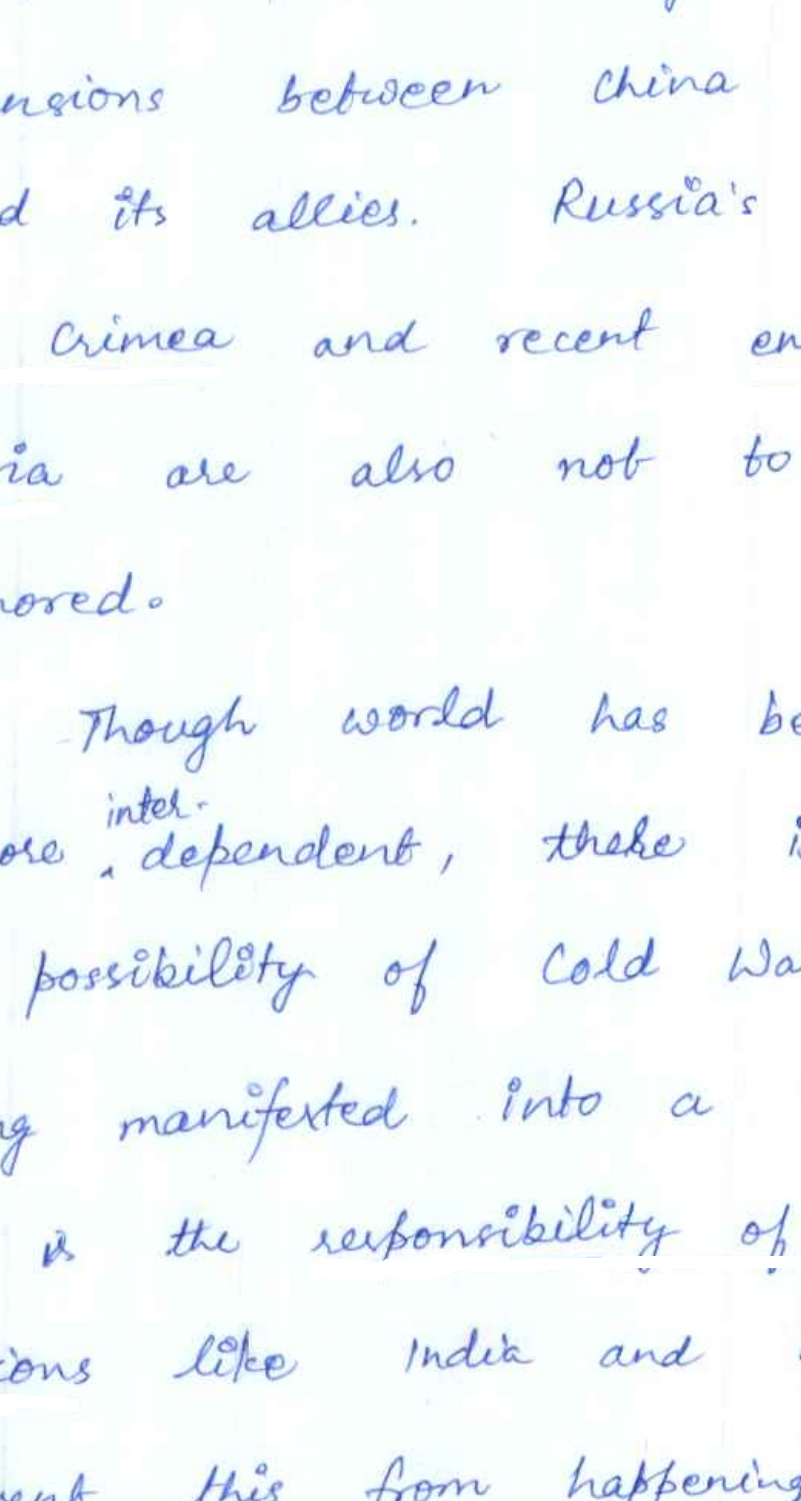 nsions between China
d its allies. Russia's
Crimea and recent en
ia are also not to
nored.
Though world has be
inter-
ore dependent, there is
possibility of Cold Wa
ng manifested into a
is the responsibility of
ions like India and
ent this from happening